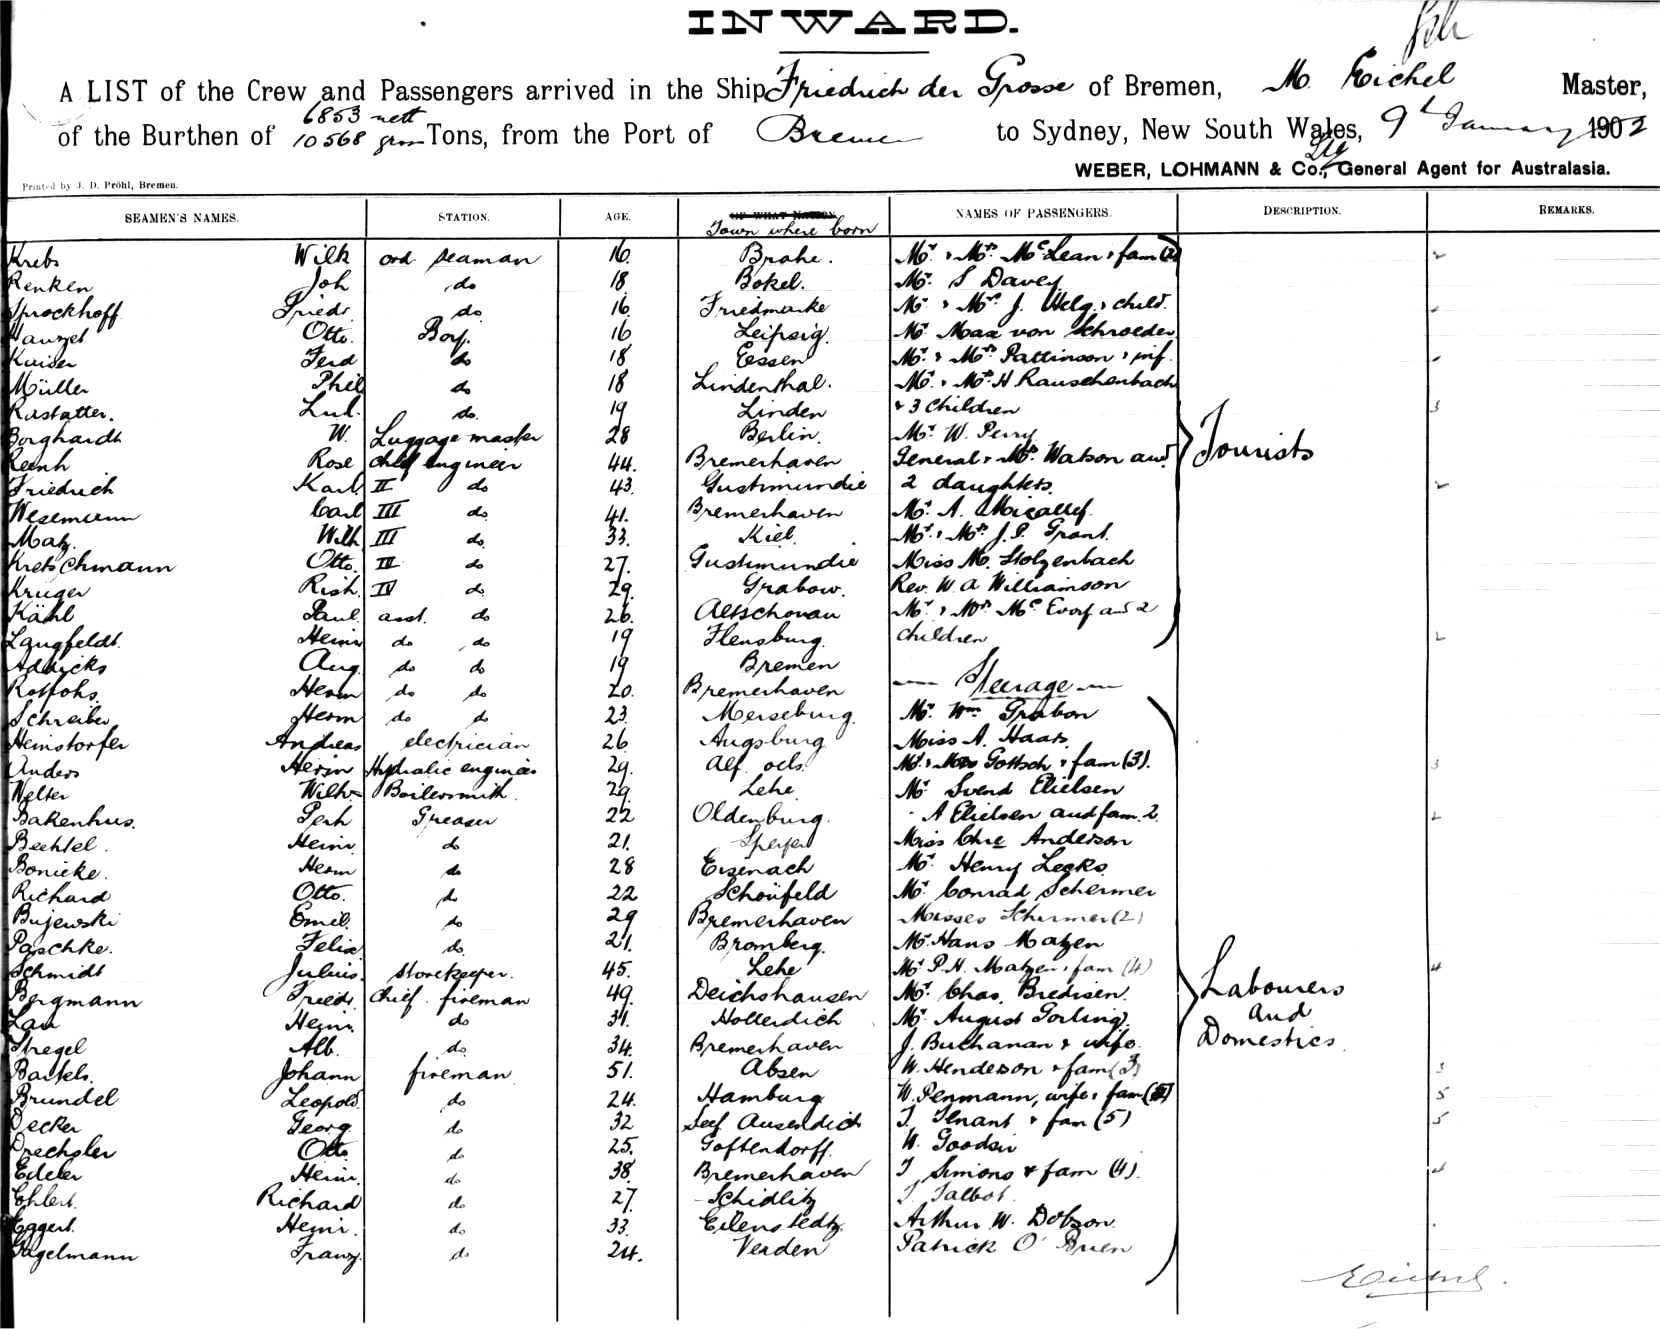 INWARD.
A LIST of the Crew and Passengers arrived in the Ship Friedrich der Grosse of Bremen, M. Eichel Master,
6853 nett
of the Burthen of 10568 gross Tons, from the Port of Bremen to Sydney, New South Wales, 9th January 1902
WEBER, LOHMANN & Co., Ltd General Agent for Australasia.
Printed by J. D. Pröhl, Bremen.
SEAMEN'S NAMES. STATION. AGE. OF WHAT NATION. NAMES OF PASSENGERS. DESCRIPTION. REMARKS.
Town where born
Krebs Wilh ord seaman 16 Brake. Mr. & Mrs. McLean & fam (2)
Renken Joh do 18 Bokel. Mr. S Davey
Sprockhoff Friedr. do 16 Mr. & Mrs. J. Helg & child.
Otto. Boy. 16 Leipzig. Mr Max von Schroeder
Kaiser Ferd do 18 Essen Mr. & Mrs. Pattinson & inf.
Müller Phil do 18 Lindenthal. Mr. & Mrs. H Rauschenbach
Rastatter. Lud. do. 19 Linden & 3 Children 3
Borghardt W. Luggage master 28 Berlin. Mr. W. Perry Tourists
Rose chief engineer 44. Bremerhaven General & Mrs. Watson and
Friedrich Karl II do 43. 2 daughters. 2
Wesemann Carl III do 41. Bremerhaven Mr. A. Micallef.
Matz Wilh III do. 33. Kiel. Mr. & Mrs. J. P. Grant.
Kretschmann Otto. III do 27. Miss M. Stolzenbach
Kruger Rich. IV do 29. Grabow. Rev. W. A Williamson
Kähl Paul asst. do 26. Altschonau Mr. & Mrs. McEvoy and 2
Langfeldt. Heinr do do 19 Flensburg. children 2
Addicks Aug do do 19 Bremen
Rotfohs. Herm do do 20. Bremerhaven Steerage
Schreiber Herm do do 23. Merseburg. Mr. Wm. Grabon
Heinstorfer Andreas electrician 26. Augsburg Miss A. Haars.
Anders Herm Hydralic engineer 29. Mr. & Mrs Gottsch & fam (3). 3
Welter Wilh Boilersmith. 29 Lehe Mr Svend Elielsen
Bakenhus. Greaser 22 Oldenburg. " A Elielsen and fam. 2. 2
Bechtel. Heinr. do 21. Speyer Miss Chre Anderson
Bonicke. Herm do 28 Eisenach Mr. Henry Lecks.
Richard Otto. do 22 Schönfeld Mr. Conrad Schermer
Bujewski Emil. do 29 Bremerhaven Misses Schermer (2)
Paschke. Felix do. 21. Bromberg. Mr. Hans Matzen
Schmidt Julius. storekeeper. 45. Lehe Mr P. H. Matzen & fam (4) 4
Bergmann Friedr. chief fireman 49. Deichshausen Mr. Chas. Bredisen. Labourers
Lau Heinr. do 31. Hollerdich Mr. August Gorling. and
Stregel Alb. do. 34. Bremerhaven J. Buchanan & wife. Domestics.
Bartels. Johann fireman 51. Absen W. Henderson & fam (3) 3
Brundel Leopold do 24. Hamburg W. Penmann, wife & fam (5) 5
Decker Georg do 32 T. Tenant & fam (5) 5
Drechsler Otto do 25. W. Goodsir
Edeler Heinr. do 38. Bremerhaven T. Simions & fam (4). 4
Ehlert. Richard do 27. Schidlitz T. Talbot.
Eggert. Heinr. do. 33. Eilenstedt Arthur W. Dobson.
Franz. do 24. Verden Patrick O'Brien